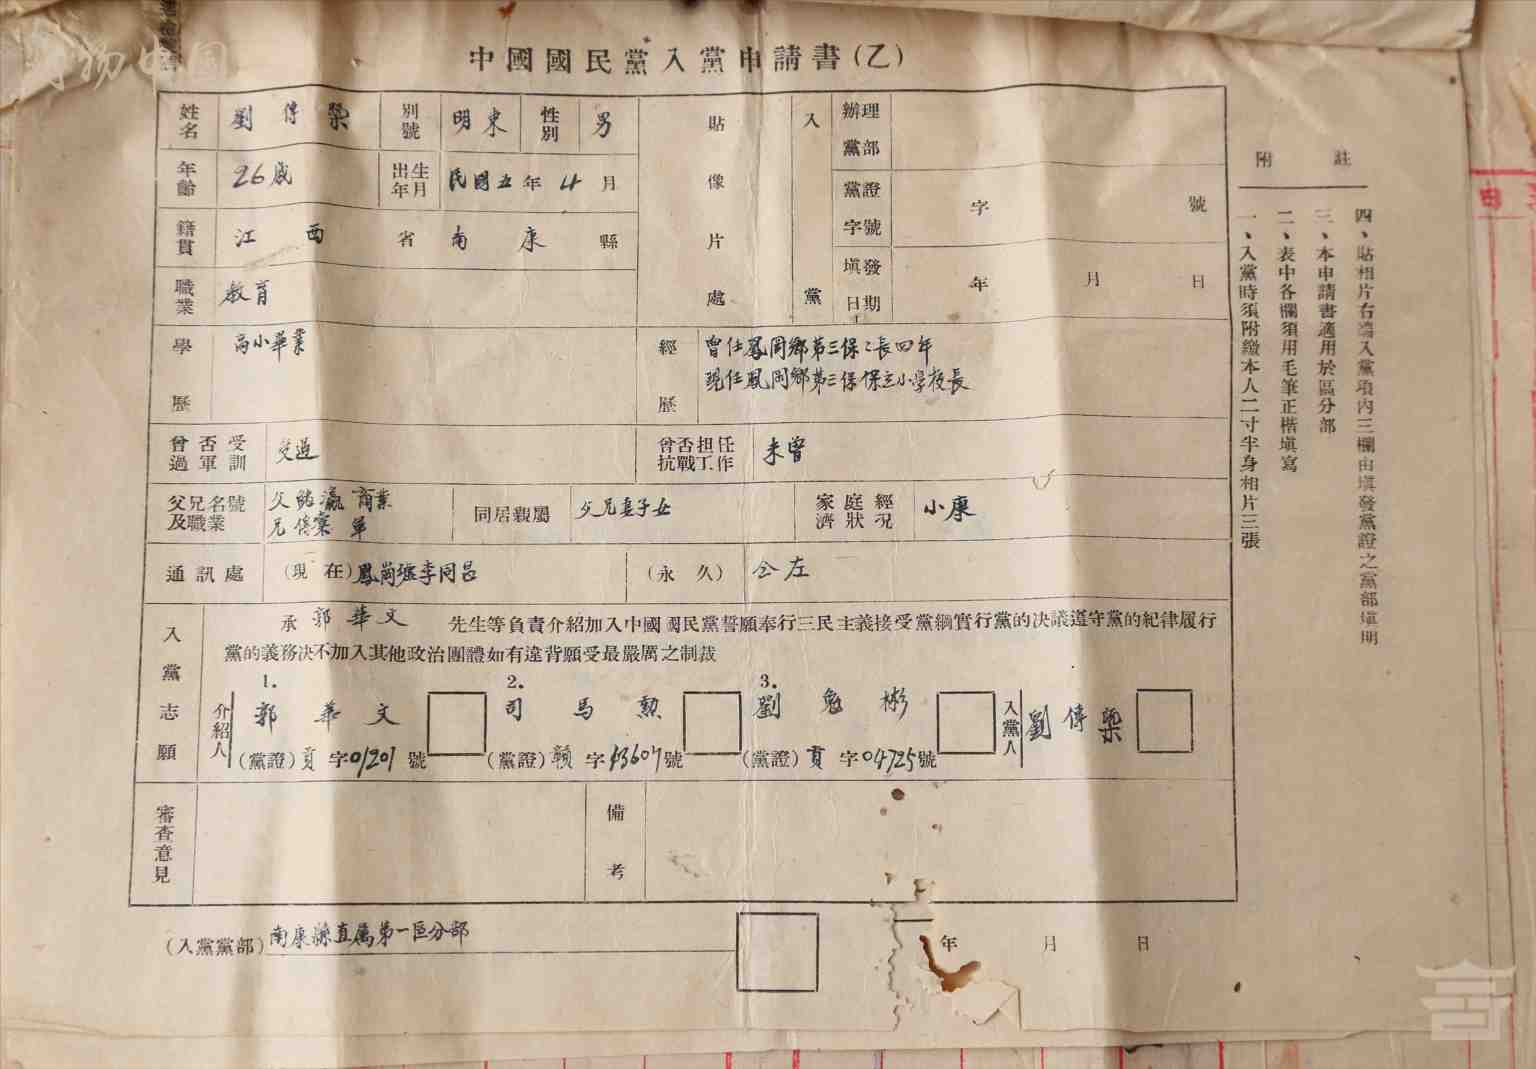 中國國民黨入黨申請書(乙)
姓名 劉傳榮 別號 明東 性別 男
年齡 26歲 出生年月 民國五年4月
籍貫 江西省南康縣
職業 教育
貼像片處
入黨
辦理黨部
黨證字號 字 號
填發日期 年 月 日
學歷 高小畢業
經歷 曾任鳳岡鄉第三保保長四年
現任鳳岡鄉第三保保立小學校長
曾否受過軍訓 受過
曾否担任抗戰工作 未曾
父兄名號及職業 父 瀛 商業
兄傳 軍
同居親屬 父兄妻子女
家庭經濟狀況 小康
通訊處 (現在)鳳崗墟李同昌
(永久) 仝左
入黨志願
承 郭華文 先生等負責介紹加入中國國民黨誓願奉行三民主義接受黨綱實行黨的決議遵守黨的紀律履行
黨的義務決不加入其他政治團體如有違背願受最嚴厲之制裁
介紹人
1. 郭華文
(黨證)貢字01201號
2. 司馬勲
(黨證)贛字43607號
3. 劉 彬
(黨證)貢字04725號
入黨人 劉傳榮
審查意見
備考
(入黨黨部)南康縣直屬第一區分部
年 月 日
附註
一、入黨時須附繳本人二寸半身相片三張
二、表中各欄須用毛筆正楷填寫
三、本申請書適用於區分部
四、貼相片右端入黨項內三欄由填發黨證之黨部填明